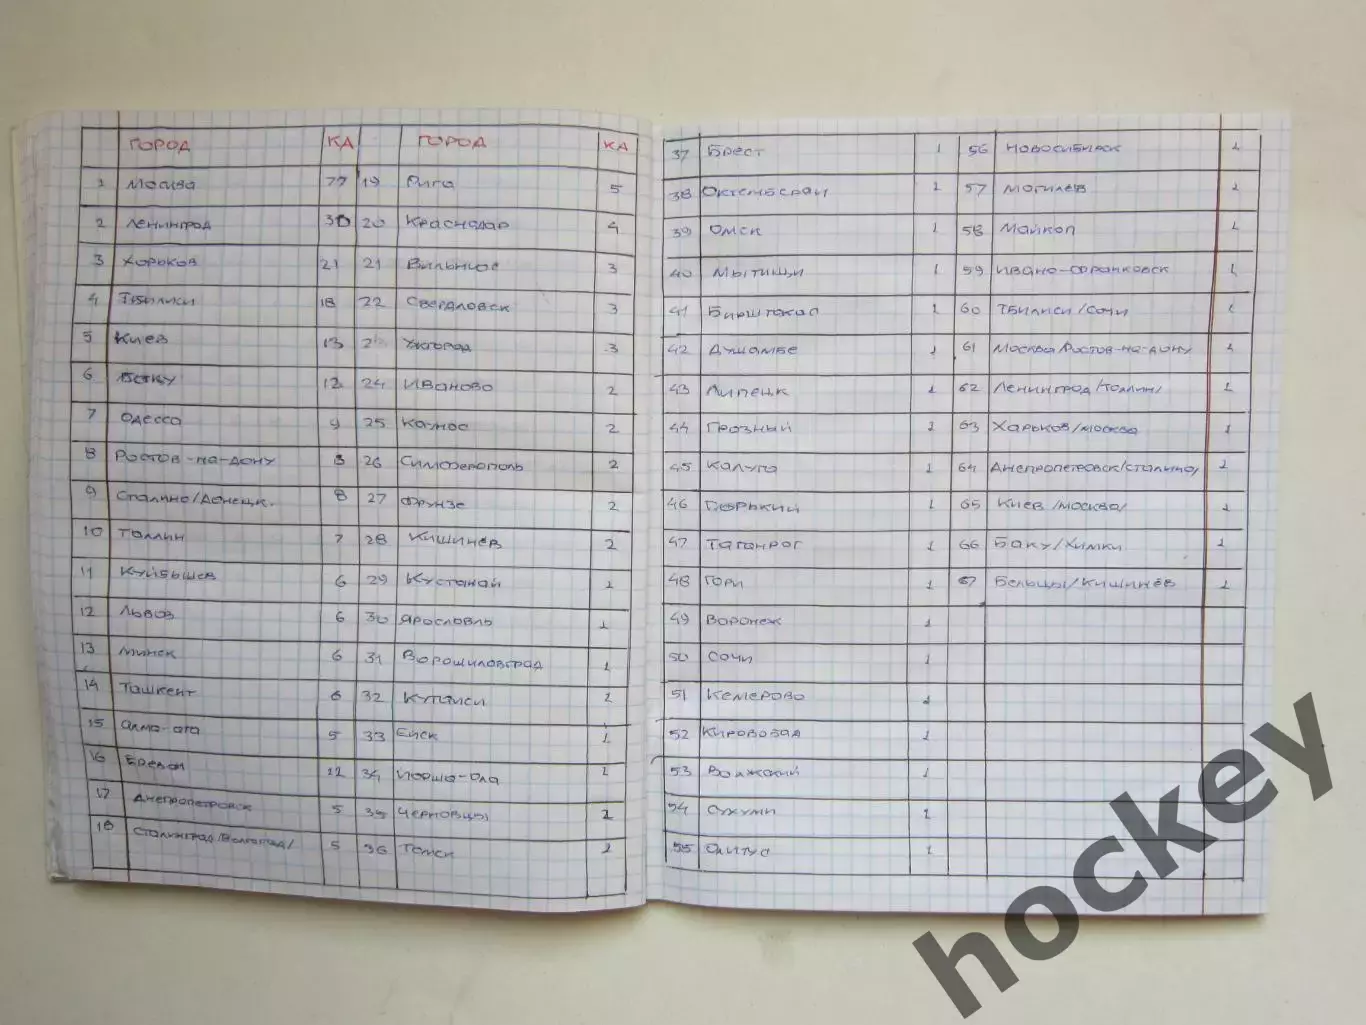 ГОРОД КА ГОРОД КА
1 Москва 77 19 Рига 5
2 Ленинград 30 20 Краснодар 4
3 Хорьков 21 21 Вильнюс 3
4 Тбилиси 18 22 Свердловск 3
5 Киев 13 Ужгород 3
6 Баку 12 24 Иваново 2
7 Одесса 9 25 Каунас 2
8 Ростов-на-Дону 8 26 Симферополь 2
9 Сталино/Донецк. 8 27 Фрунзе 2
10 Таллин 7 28 Кишинёв 2
11 Куйбышев 6 29 Кустанай 1
12 Львов 6 30 Ярославль 1
13 Минск 6 31 Ворошиловград 1
14 Ташкент 6 32 Кутаиси 2
15 Алма-ата 5 33 Ейск 1
16 Ереван 12 34 Йошка-Ола 1
17 Днепропетровск 5 35 Черновцы 2
18 Сталинград/Волгоград/ 5 36 Томск 2
37 Брест 1 56 Новосибирск 1
38 1 57 Могилев 1
39 Омск 1 58 Майкоп 1
40 Мытищи 1 59 Ивано-Франковск 1
41 Бирштонас 1 60 Тбилиси/Сочи 1
42 Душамбе 1 61 Москва/Ростов-на-Дону 1
43 Липецк 1 62 Ленинград/Таллин/ 1
44 Грозный 1 63 Харьков/Москва 1
45 Калуга 1 64 Днепропетровск/Сталино/ 1
46 Горький 1 65 Киев/Москва/ 1
47 Таганрог 1 66 Баку/Химки 1
48 Гори 1 67 Бельцы/Кишинёв 1
49 Воронеж 1
50 Сочи 1
51 Кемерово 1
52 Кировобад 1
53 Волжский 1
54 Сухуми 1
55 Алитус 1
hockey